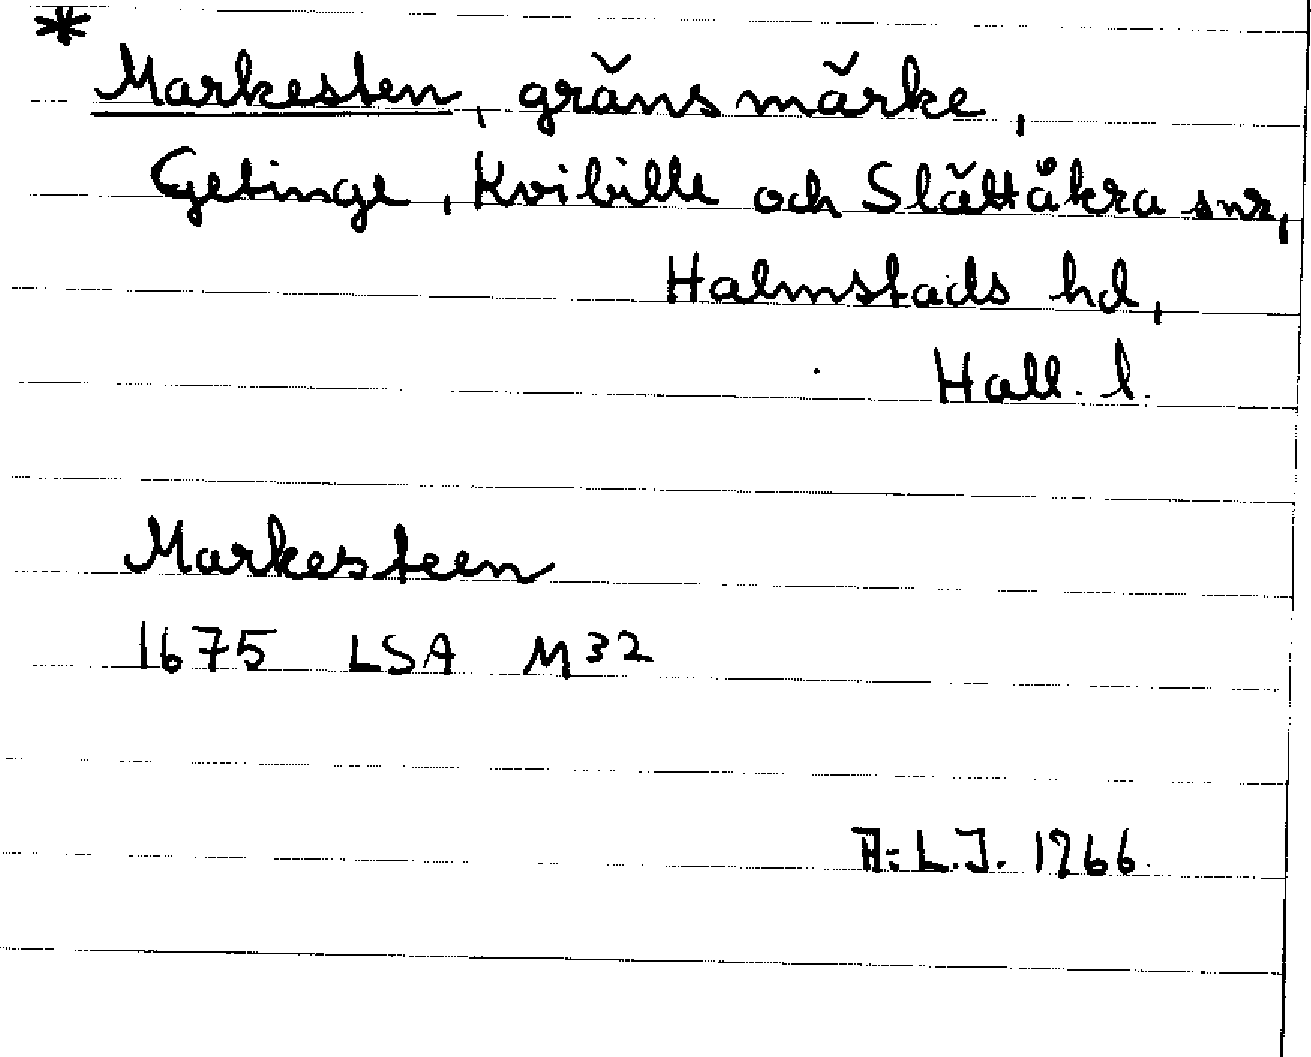 *
Markesten, gränsmärke,
Getinge, Kvibille och Slättåkra snr,
Halmstads hd,
Hall. l.
Markesteen
1675 LSA M32
A:L.J. 1966.